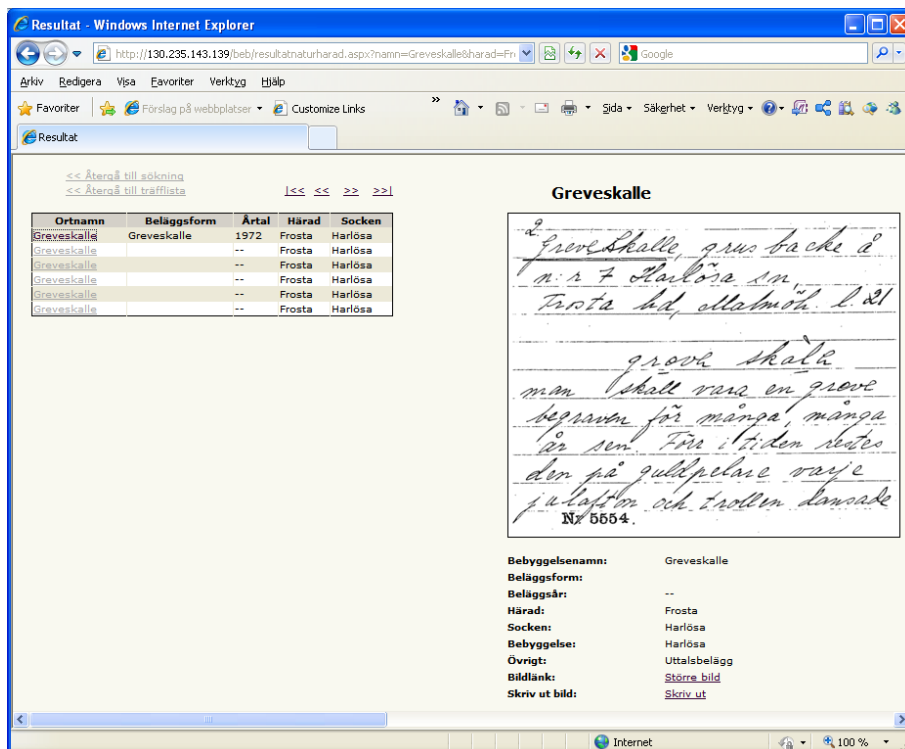 Resultat - Windows Internet Explorer
http://130.235.143.139/beb/resultatnaturharad.aspx?namn=Greveskalle&harad=Fr
Google
Arkiv Redigera Visa Favoriter Verktyg Hjälp
Favoriter Förslag på webbplatser Customize Links » Sida Säkerhet Verktyg
Resultat
<< Återgå till sökning
<< Återgå till träfflista |<< << >> >>|
Ortnamn Beläggsform Årtal Härad Socken
Greveskalle Greveskalle 1972 Frosta Harlösa
Greveskalle -- Frosta Harlösa
Greveskalle -- Frosta Harlösa
Greveskalle -- Frosta Harlösa
Greveskalle -- Frosta Harlösa
Greveskalle -- Frosta Harlösa
Greveskalle
2.
Greveskalle, grus backe å
n:r 7 Harlösa sn,
Frosta hd, Malmöh. l. 21
man skall vara en greve
begraven för många, många
år sen. Förr i tiden restes
den på guldpelare varje
julafton och trollen dansade
Nr 5554.
Bebyggelsenamn: Greveskalle
Beläggsform:
Beläggsår: --
Härad: Frosta
Socken: Harlösa
Bebyggelse: Harlösa
Övrigt: Uttalsbelägg
Bildlänk: Större bild
Skriv ut bild: Skriv ut
Internet 100 %